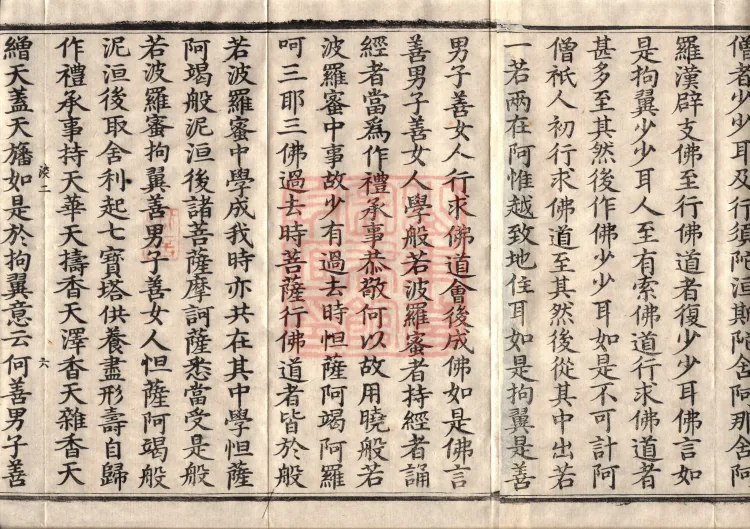 僧者少少耳及行須陀洹斯陀含阿那含阿
羅漢辟支佛至行佛道者復少少耳佛言如
是拘翼少少耳人至有索佛道行求佛道者
甚多至其然後作佛少少耳如是不可計阿
僧祇人初行求佛道至其然後從其中出若
一若兩在阿惟越致地住耳如是拘翼是善
男子善女人行求佛道會後成佛如是佛言
善男子善女人學般若波羅蜜者持經者誦
經者當為作禮承事恭敬何以故用曉般若
波羅蜜中事故少有過去時怛薩阿竭阿羅
呵三耶三佛過去時菩薩行佛道者皆於般
若波羅蜜中學成我時亦共在其中學怛薩
阿竭般泥洹後諸菩薩摩訶薩悉當受是般
若波羅蜜拘翼善男子善女人怛薩阿竭般
泥洹後取舍利起七寶塔供養盡形壽自歸
作禮承事持天華天擣香天澤香天雜香天
淡二 六
繒天蓋天旛如是於拘翼意云何善男子善